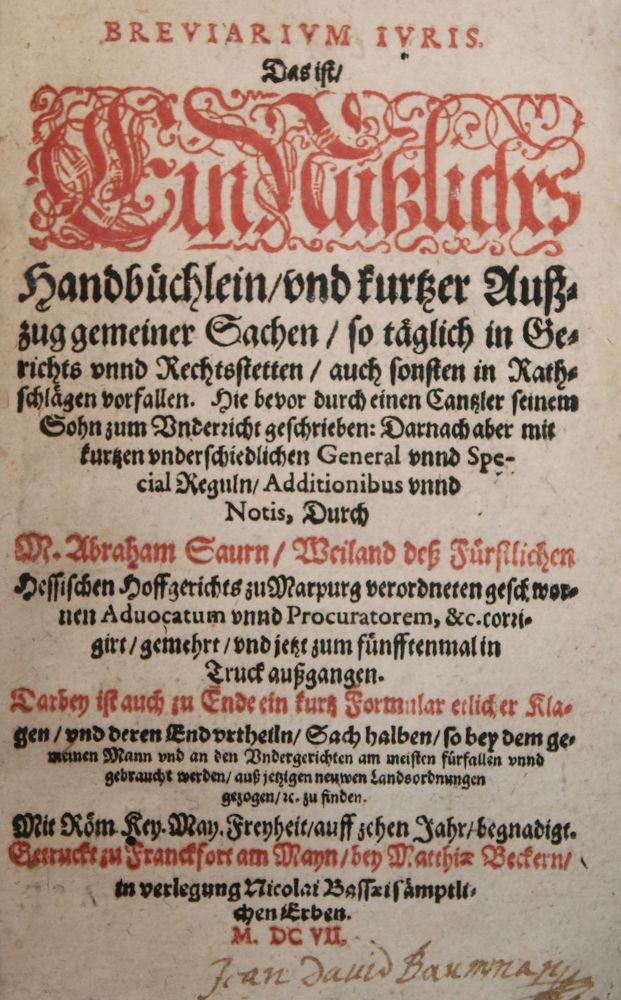 BREVIARIVM IVRIS.
Das ist/
Ein Nützlichs
Handbüchlein/vnd kurtzer Auß-
zug gemeiner Sachen / so täglich in Ge-
richts vnnd Rechtsstetten / auch sonsten in Rath-
schlägen vorfallen. Hie bevor durch einen Cantzler seinem
Sohn zum Vnderricht geschrieben: Darnach aber mit
kurtzen vnderschiedlichen General vnnd Spe-
cial Reguln/ Additionibus vnnd
Notis, Durch
M. Abraham Saurn / Weiland deß Fürstlichen
Hessischen Hoffgerichts zu Marpurg verordneten geschwor-
nen Aduocatum vnnd Procuratorem, &c. corri-
girt / gemehrt / vnd jetzt zum fünfftenmal in
Truck außgangen.
Darbey ist auch zu Ende ein kurtz Formular etlicher Kla-
gen / vnd deren Endvrtheiln / Sach halben / so bey dem ge-
meinen Mann vnd an den Vndergerichten am meisten fürfallen vnnd
gebraucht werden / auß jetzigen neuwen Landsordnungen
gezogen / ꝛc. zu finden.
Mit Röm. Key. May. Freyheit/auff zehen Jahr/begnadigt.
Getruckt zu Franckfort am Mayn / bey Matthiæ Beckern /
in verlegung Nicolai Bassæi sämptli-
chen Erben.
M. DC VII.
Jean David Baumman